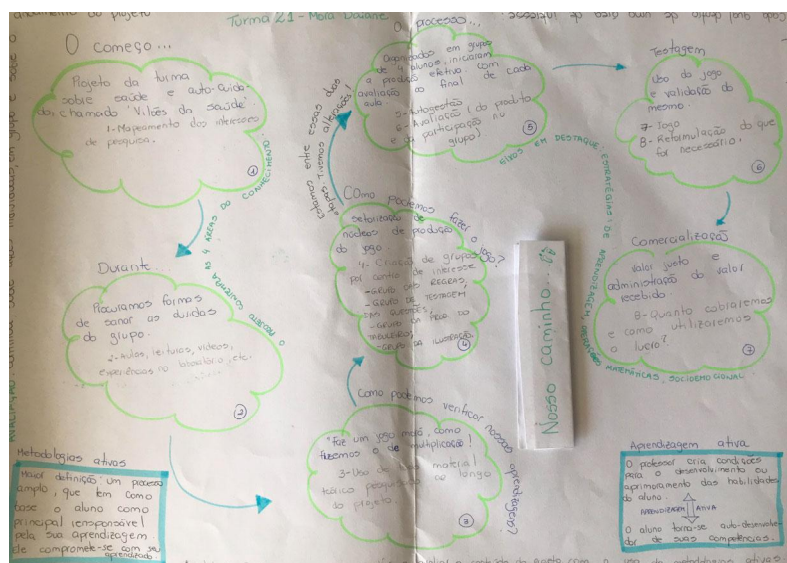 Turma 21 - Mora Daiane
O começo...
Projeto da turma
sobre saúde e auto-cuida-
do, chamado "Vilões da saúde".
1- Mapeamento dos interesses
de pesquisa.
1
O PROJETO CONTEMPLA AS 4 ÁREAS DO CONHECIMENTO.
Durante...
Procuramos formas
de sanar as dúvidas
do grupo.
2- Aulas, leituras, vídeos,
experiências no laboratório, etc.
2
Como podemos verificar nossas aprendizagens?
"Faz um jogo, Morá, como
fazemos o de multiplicação!
3- Uso de material
teórico pesquisado ao longo
do projeto.
3
Como podemos fazer o jogo?
Setorização de
núcleos de produção
do jogo.
4- Criação de grupos
por centro de interesse
- GRUPO DAS REGRAS,
- GRUPO DE TESTAGEM
DAS QUESTÕES,
- GRUPO DO
TABULEIRO,
- GRUPO DA ILUSTRAÇÃO.
4
Estamos entre essas duas
etapas. Tivemos alterações!
O processo...
Organizados em grupos
de 4 alunos, iniciaram
a produção efetiva, com
avaliação ao final de cada
aula.
5- Autogestão
6- Avaliação (do produto
e da participação no
grupo)
5
EIXOS EM DESTAQUE: ESTRATÉGIAS DE APRENDIZAGEM, OPERAÇÕES MATEMÁTICAS, SOCIOEMOCIONAL.
Testagem
Uso do jogo
e validação do
mesmo.
7- Jogo
8- Reformulação do que
for necessário.
6
Comercialização
Valor justo e
administração do valor
recebido.
8- Quanto cobraremos
e como utilizaremos
o lucro?
7
Nosso caminho...
Metodologias ativas
Maior definição: um processo
amplo, que tem como
base o aluno como
principal responsável
pela sua aprendizagem.
Ele compromete-se com seu
aprendizado.
Aprendizagem ativa
O professor cria condições
para o desenvolvimento ou
aprimoramento das habilidades
do aluno.
APRENDIZAGEM ATIVA
O aluno torna-se auto-desenvolve-
dor de suas competências.